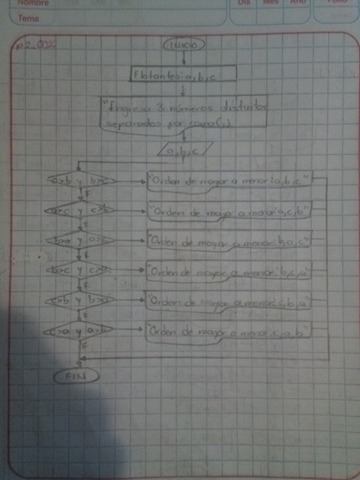 Nombre
Dia Mes Año
Tema
INICIO
Flotantes: a, b, c
"Ingresa 3 números distintos
separados por coma(,)
a, b, c
a>b y b>c
"Orden de mayor a menor: a, b, c"
a>c y c>b
"Orden de mayor a menor: a, c, b
b>a y a>c
"Orden de mayor a menor: b, a, c"
b>c y c>a
"Orden de mayor a menor: b, c, a"
c>b y b>a
"Orden de mayor a menor: c, b, a
c>a y a>b
"Orden de mayor a menor: c, a, b"
FIN